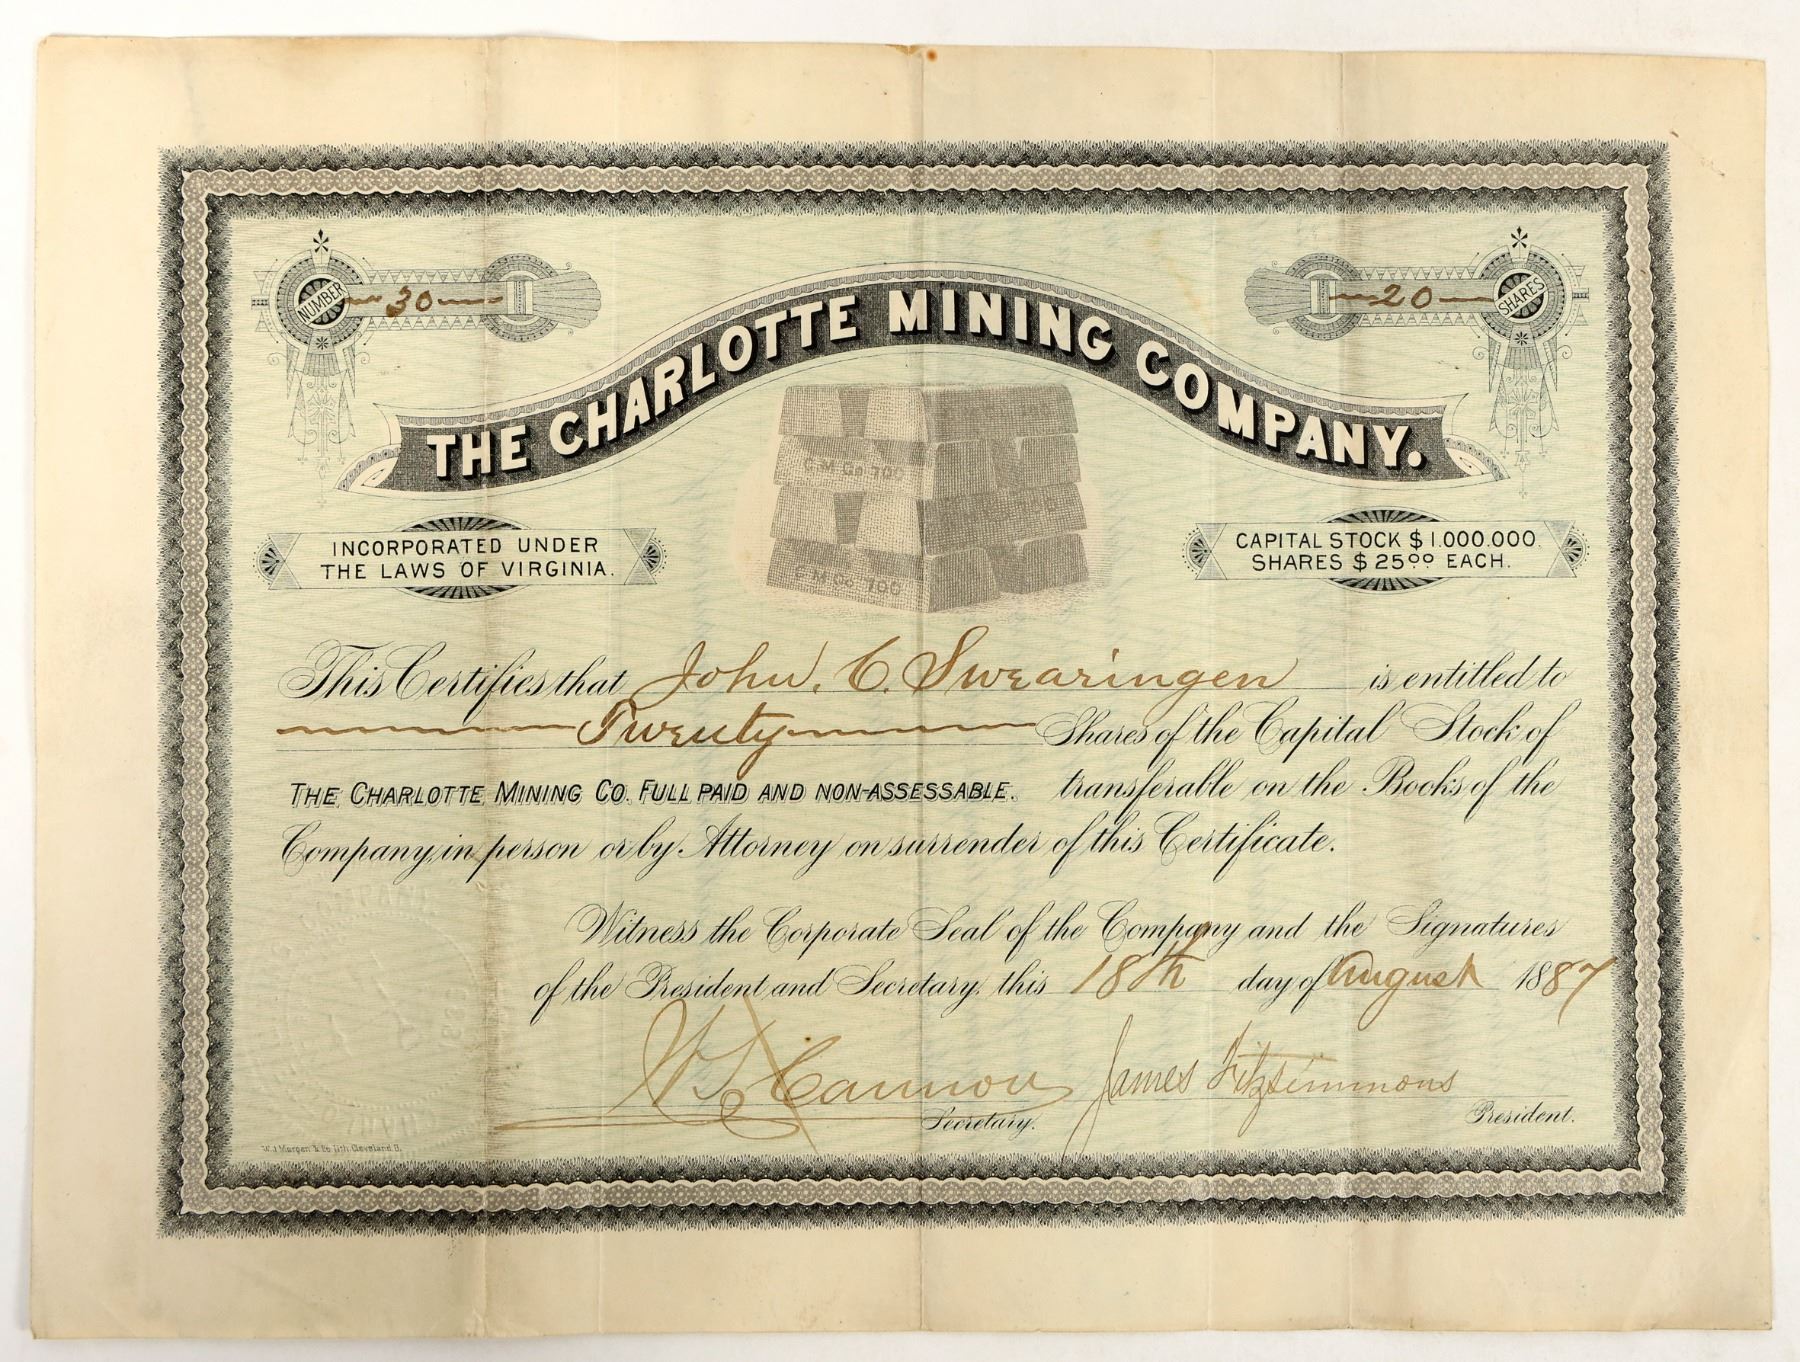 NUMBER 30
20 SHARES
THE CHARLOTTE MINING COMPANY.
C. M. Co. 700
C. M. Co. 700
INCORPORATED UNDER
THE LAWS OF VIRGINIA.
CAPITAL STOCK $1.000.000.
SHARES $25.00 EACH.
This Certifies that John. C. Swearingen is entitled to
Twenty Shares of the Capital Stock of
THE CHARLOTTE MINING CO. FULL PAID AND NON-ASSESSABLE. transferable on the Books of the
Company, in person or by Attorney on surrender of this Certificate.
Witness the Corporate Seal of the Company and the Signatures
of the President and Secretary, this 18th day of August 1887
Cannon James Fitzsimmons
Secretary. President.
W. J. Morgan & Co. Lith. Cleveland O.